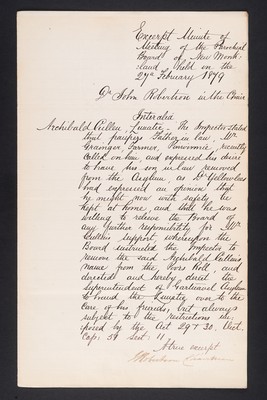 Excerpt Minute of
Meeting of the Parochial
Board of New Monk-
land held on the
27th February 1879
Dr John Robertson in the Chair
Interalia
Archibald Cullen, Lunatic – The Inspector stated
that pauper's Father in law, Mr
Grainger, Farmer, recently
called on him and expressed his desire
to have his son in law removed
from the Asylum, as Dr Yellowlees
had expressed an opinion that
he might now with safety be
kept at home, and that he was
willing to relieve the Board of
any further responsibility for Mr
Cullen's support, whereupon the
Board instructed the Inspector to
remove the said Archibald Cullen's
name from the Poors Roll, and
directed and hereby direct the
Superintendent of Gartnavel Asylum
to hand the Lunatic over to the
care of his friends, but always
subject to the restrictions im-
posed by the Act 29 & 30. Vict.
Cap: 51 Sect: 11.
A true excerpt